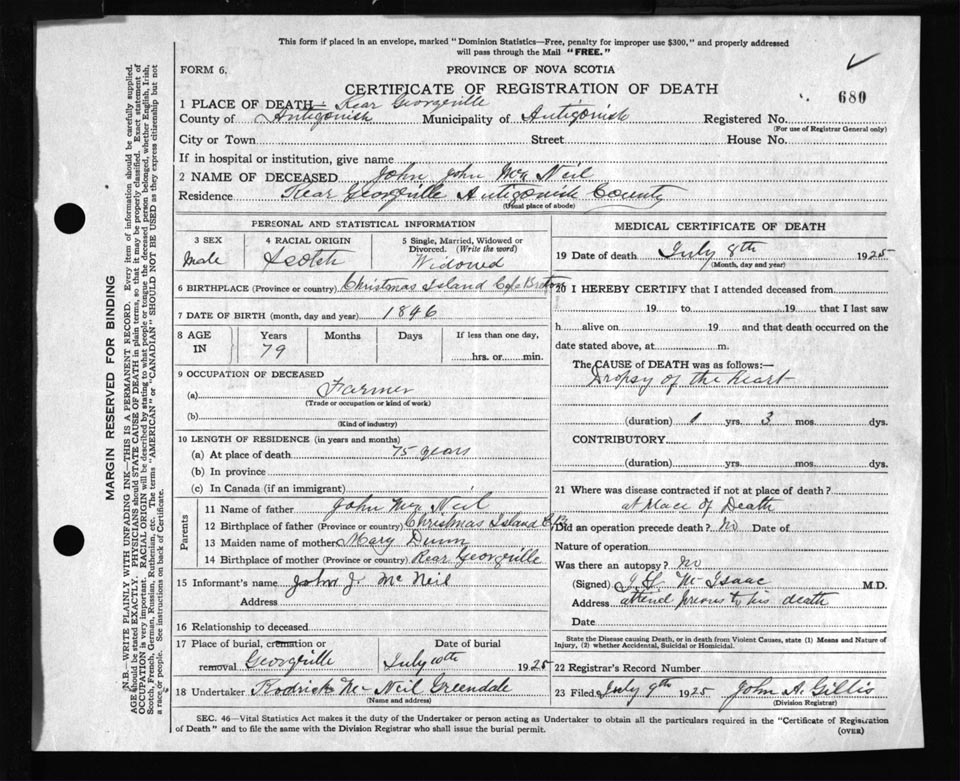 This form if placed in an envelope, marked "Dominion Statistics—Free, penalty for improper use $300," and properly addressed
will pass through the Mail "FREE."
FORM 6. PROVINCE OF NOVA SCOTIA
CERTIFICATE OF REGISTRATION OF DEATH
680
1 PLACE OF DEATH— Rear Georgeville
County of Antigonish Municipality of Antigonish Registered No.
(For use of Registrar General only)
City or Town Street House No.
If in hospital or institution, give name
2 NAME OF DECEASED John John Mc Neil
Residence Rear Georgeville Antigonish County
(Usual place of abode)
MARGIN RESERVED FOR BINDING
N.B.—WRITE PLAINLY WITH UNFADING INK—THIS IS A PERMANENT RECORD. Every item of information should be carefully supplied.
AGE should be stated EXACTLY. PHYSICIANS should STATE CAUSE OF DEATH in plain terms, so that it may be properly classified. Exact statement of
OCCUPATION is very important. RACIAL ORIGIN will be described by stating to what people or tongue the deceased person belonged, whether English, Irish,
Scotch, French, German, Russian, Ruthenian, etc. The terms "AMERICAN" or "CANADIAN" SHOULD NOT BE USED as they express citizenship but not
a race or people. See instructions on back of Certificate.
PERSONAL AND STATISTICAL INFORMATION
3 SEX 4 RACIAL ORIGIN 5 Single, Married, Widowed or
Divorced. (Write the word)
Male Scotch Widowed
6 BIRTHPLACE (Province or country) Christmas Island Cape Breton
7 DATE OF BIRTH (month, day and year) 1846
8 AGE Years Months Days If less than one day,
IN 79 hrs. or min.
9 OCCUPATION OF DECEASED
(a) Farmer
(Trade or occupation or kind of work)
(b)
(Kind of industry)
10 LENGTH OF RESIDENCE (in years and months)
(a) At place of death 75 years
(b) In province
(c) In Canada (if an immigrant)
Parents
11 Name of father John Mc Neil
12 Birthplace of father (Province or country) Christmas Island C.B.
13 Maiden name of mother Mary Dunn
14 Birthplace of mother (Province or country) Rear Georgeville
15 Informant's name John J. Mc Neil
Address
16 Relationship to deceased
17 Place of burial, cremation or Date of burial
removal Georgeville July 10th 1925
18 Undertaker Rodrick Mc Neil Greendale
(Name and address)
MEDICAL CERTIFICATE OF DEATH
19 Date of death July 8th 1925
(Month, day and year)
20 I HEREBY CERTIFY that I attended deceased from
19 to 19 that I last saw
h alive on 19 and that death occurred on the
date stated above, at m.
The CAUSE OF DEATH was as follows:—
Dropsy of the heart
(duration) 1 yrs. 3 mos. dys.
CONTRIBUTORY
(duration) yrs. mos. dys.
21 Where was disease contracted if not at place of death?
at Place of Death
Did an operation precede death? No Date of
Nature of operation
Was there an autopsy? No
(Signed) Mc Isaac M.D.
Address attend to his death
Date
State the Disease causing Death, or in death from Violent Causes, state (1) Means and Nature of
Injury, (2) whether Accidental, Suicidal or Homicidal.
22 Registrar's Record Number
23 Filed July 9th 1925 John A. Gillis
(Division Registrar)
SEC. 46—Vital Statistics Act makes it the duty of the Undertaker or person acting as Undertaker to obtain all the particulars required in the "Certificate of Registration
of Death" and to file the same with the Division Registrar who shall issue the burial permit.
(OVER)